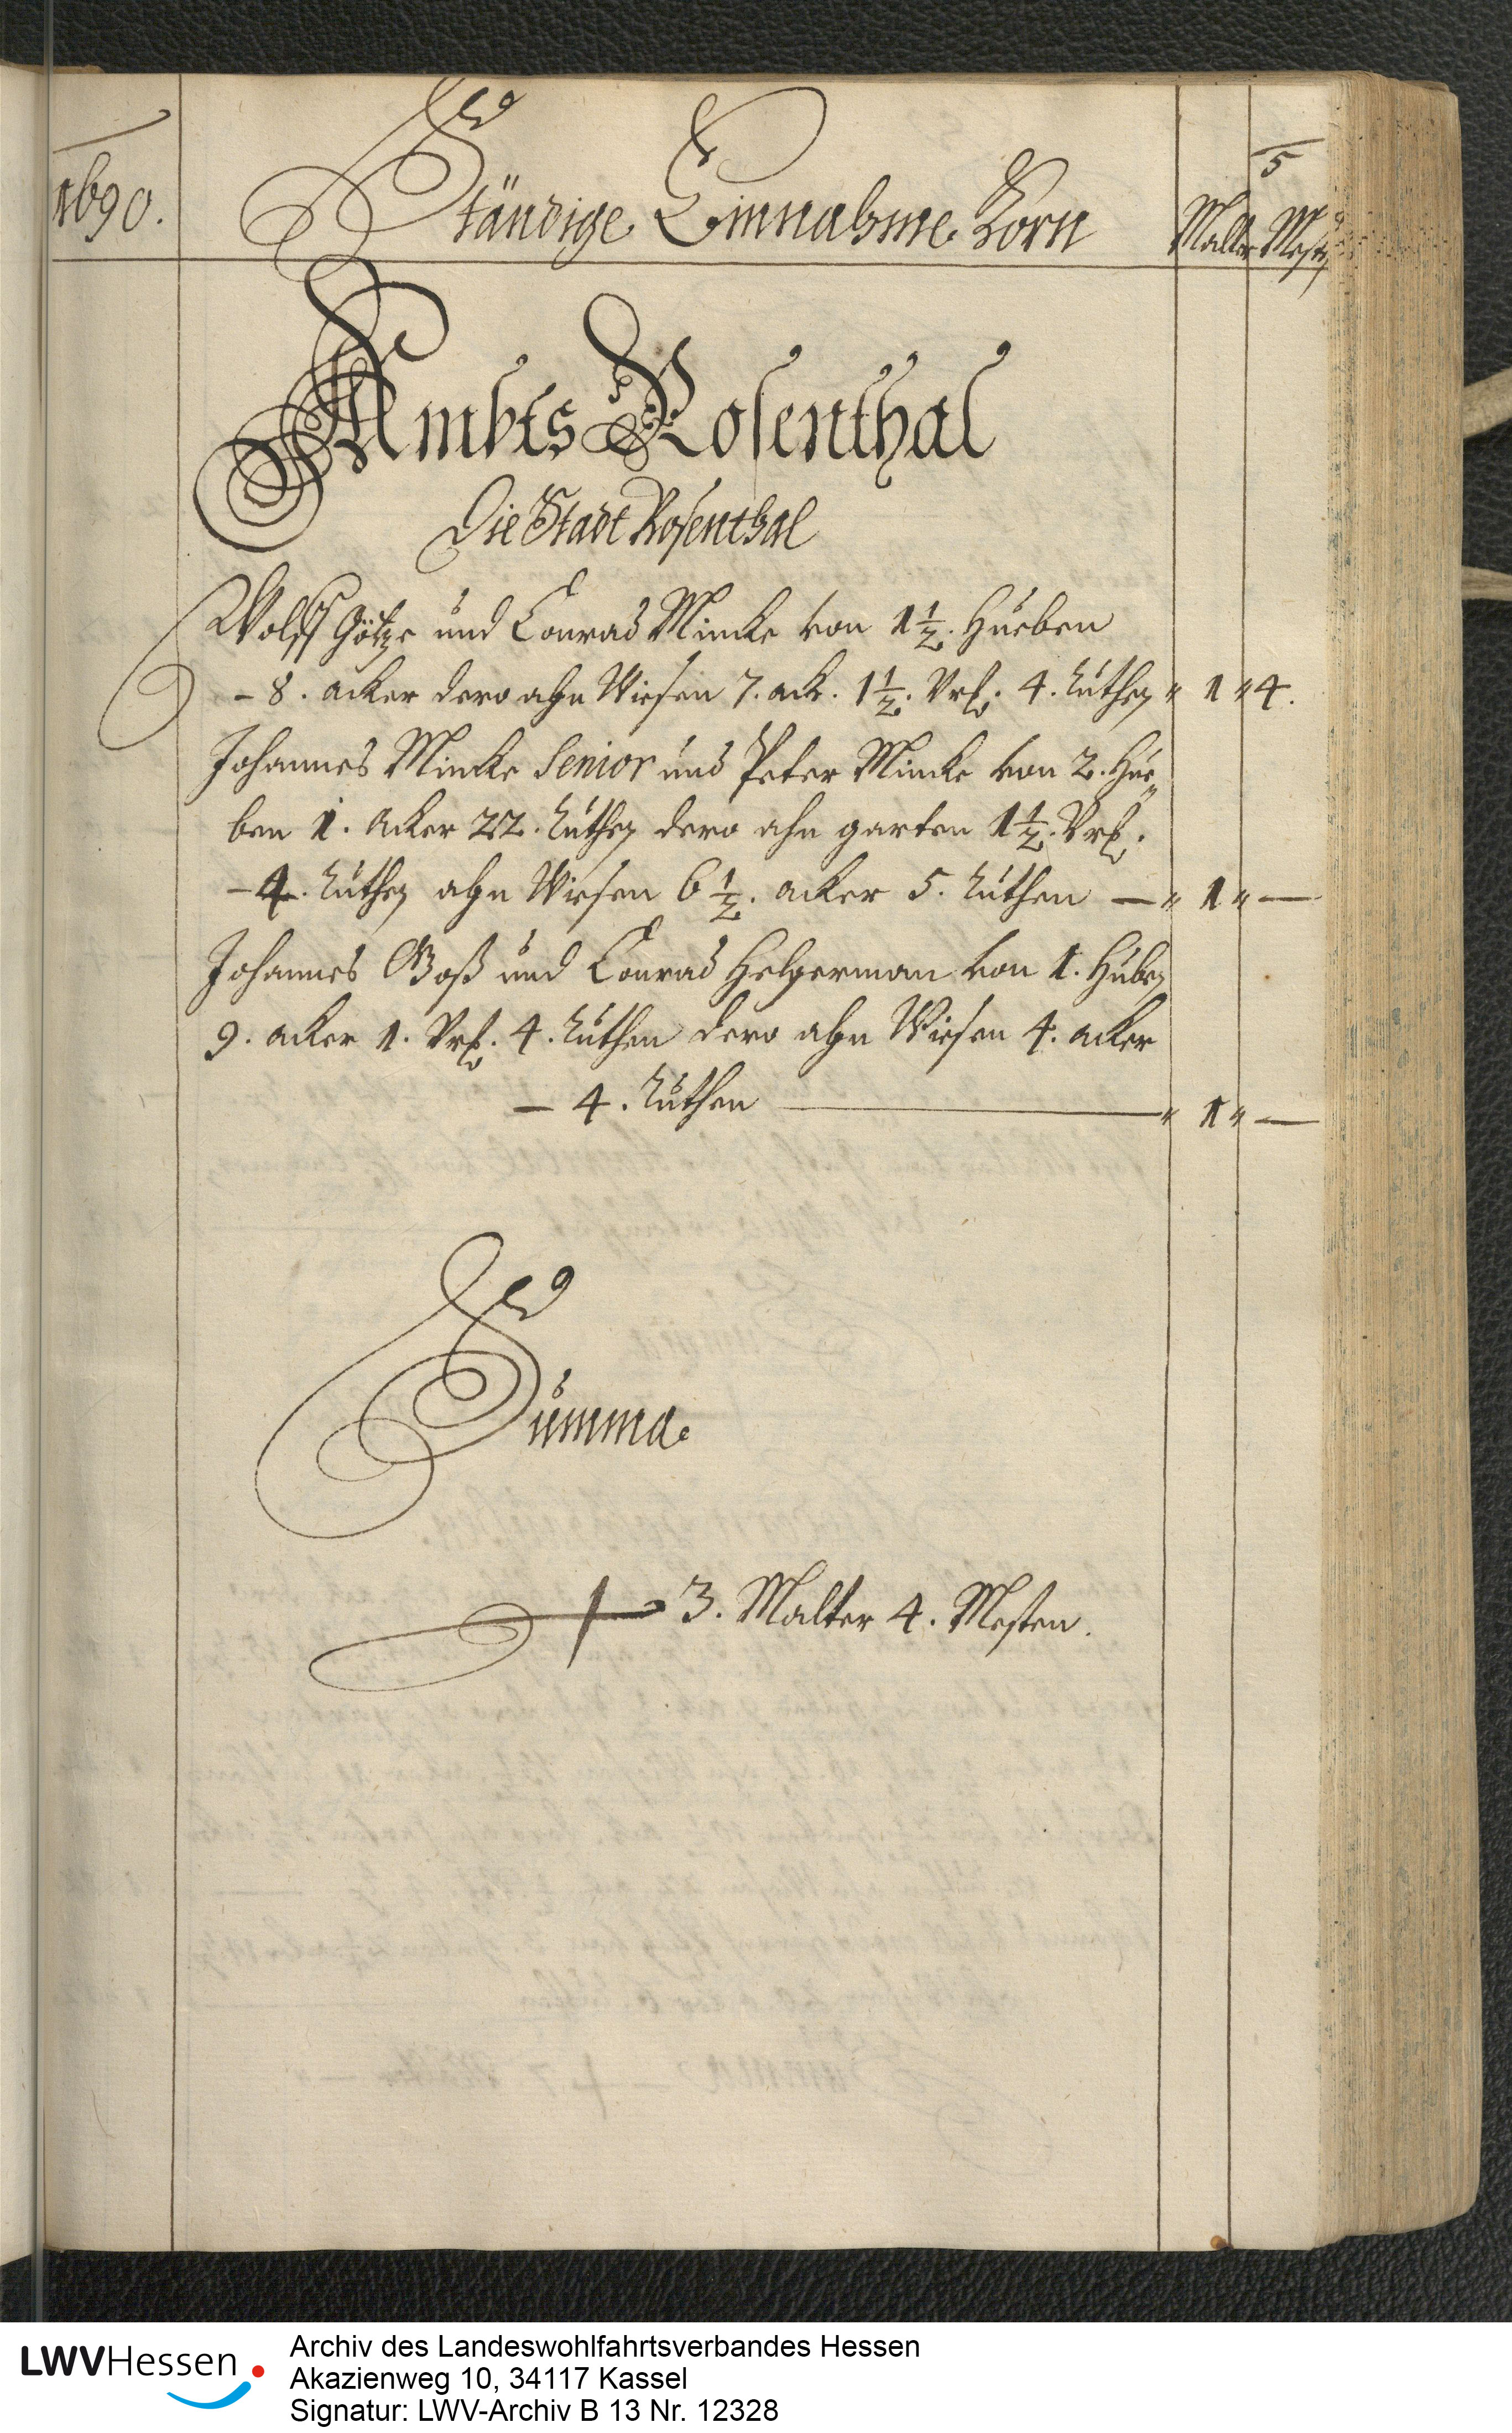 5
1690. Ständige Einnahme Korn Malter Mesten
Ambts Rosenthal
Die Stadt Rosenthal
Wolff Götze und Conrad Mincke von 1½. Hueben
- 8. acker dero ahn Wiesen 7. ack. 1½. Vrtl. 4. Ruthen " 1 " 4.
Johannes Mincke Senior und Peter Mincke von 2. Hue-
ben 1. Acker 22. Ruthen dero ahn garten 1½. Vrtl.
- 4. Ruthen ahn Wiesen 6½. acker 5. Ruthen — " 1 " —
Johannes Boß und Conrad Helperman von 1. Huben
9. acker 1. Vrtl. 4. Ruthen dero ahn Wiesen 4. acker
- 4. Ruthen — " 1 " —
Summa
3. Malter 4. Mesten.
LWVHessen
Archiv des Landeswohlfahrtsverbandes Hessen
Akazienweg 10, 34117 Kassel
Signatur: LWV-Archiv B 13 Nr. 12328